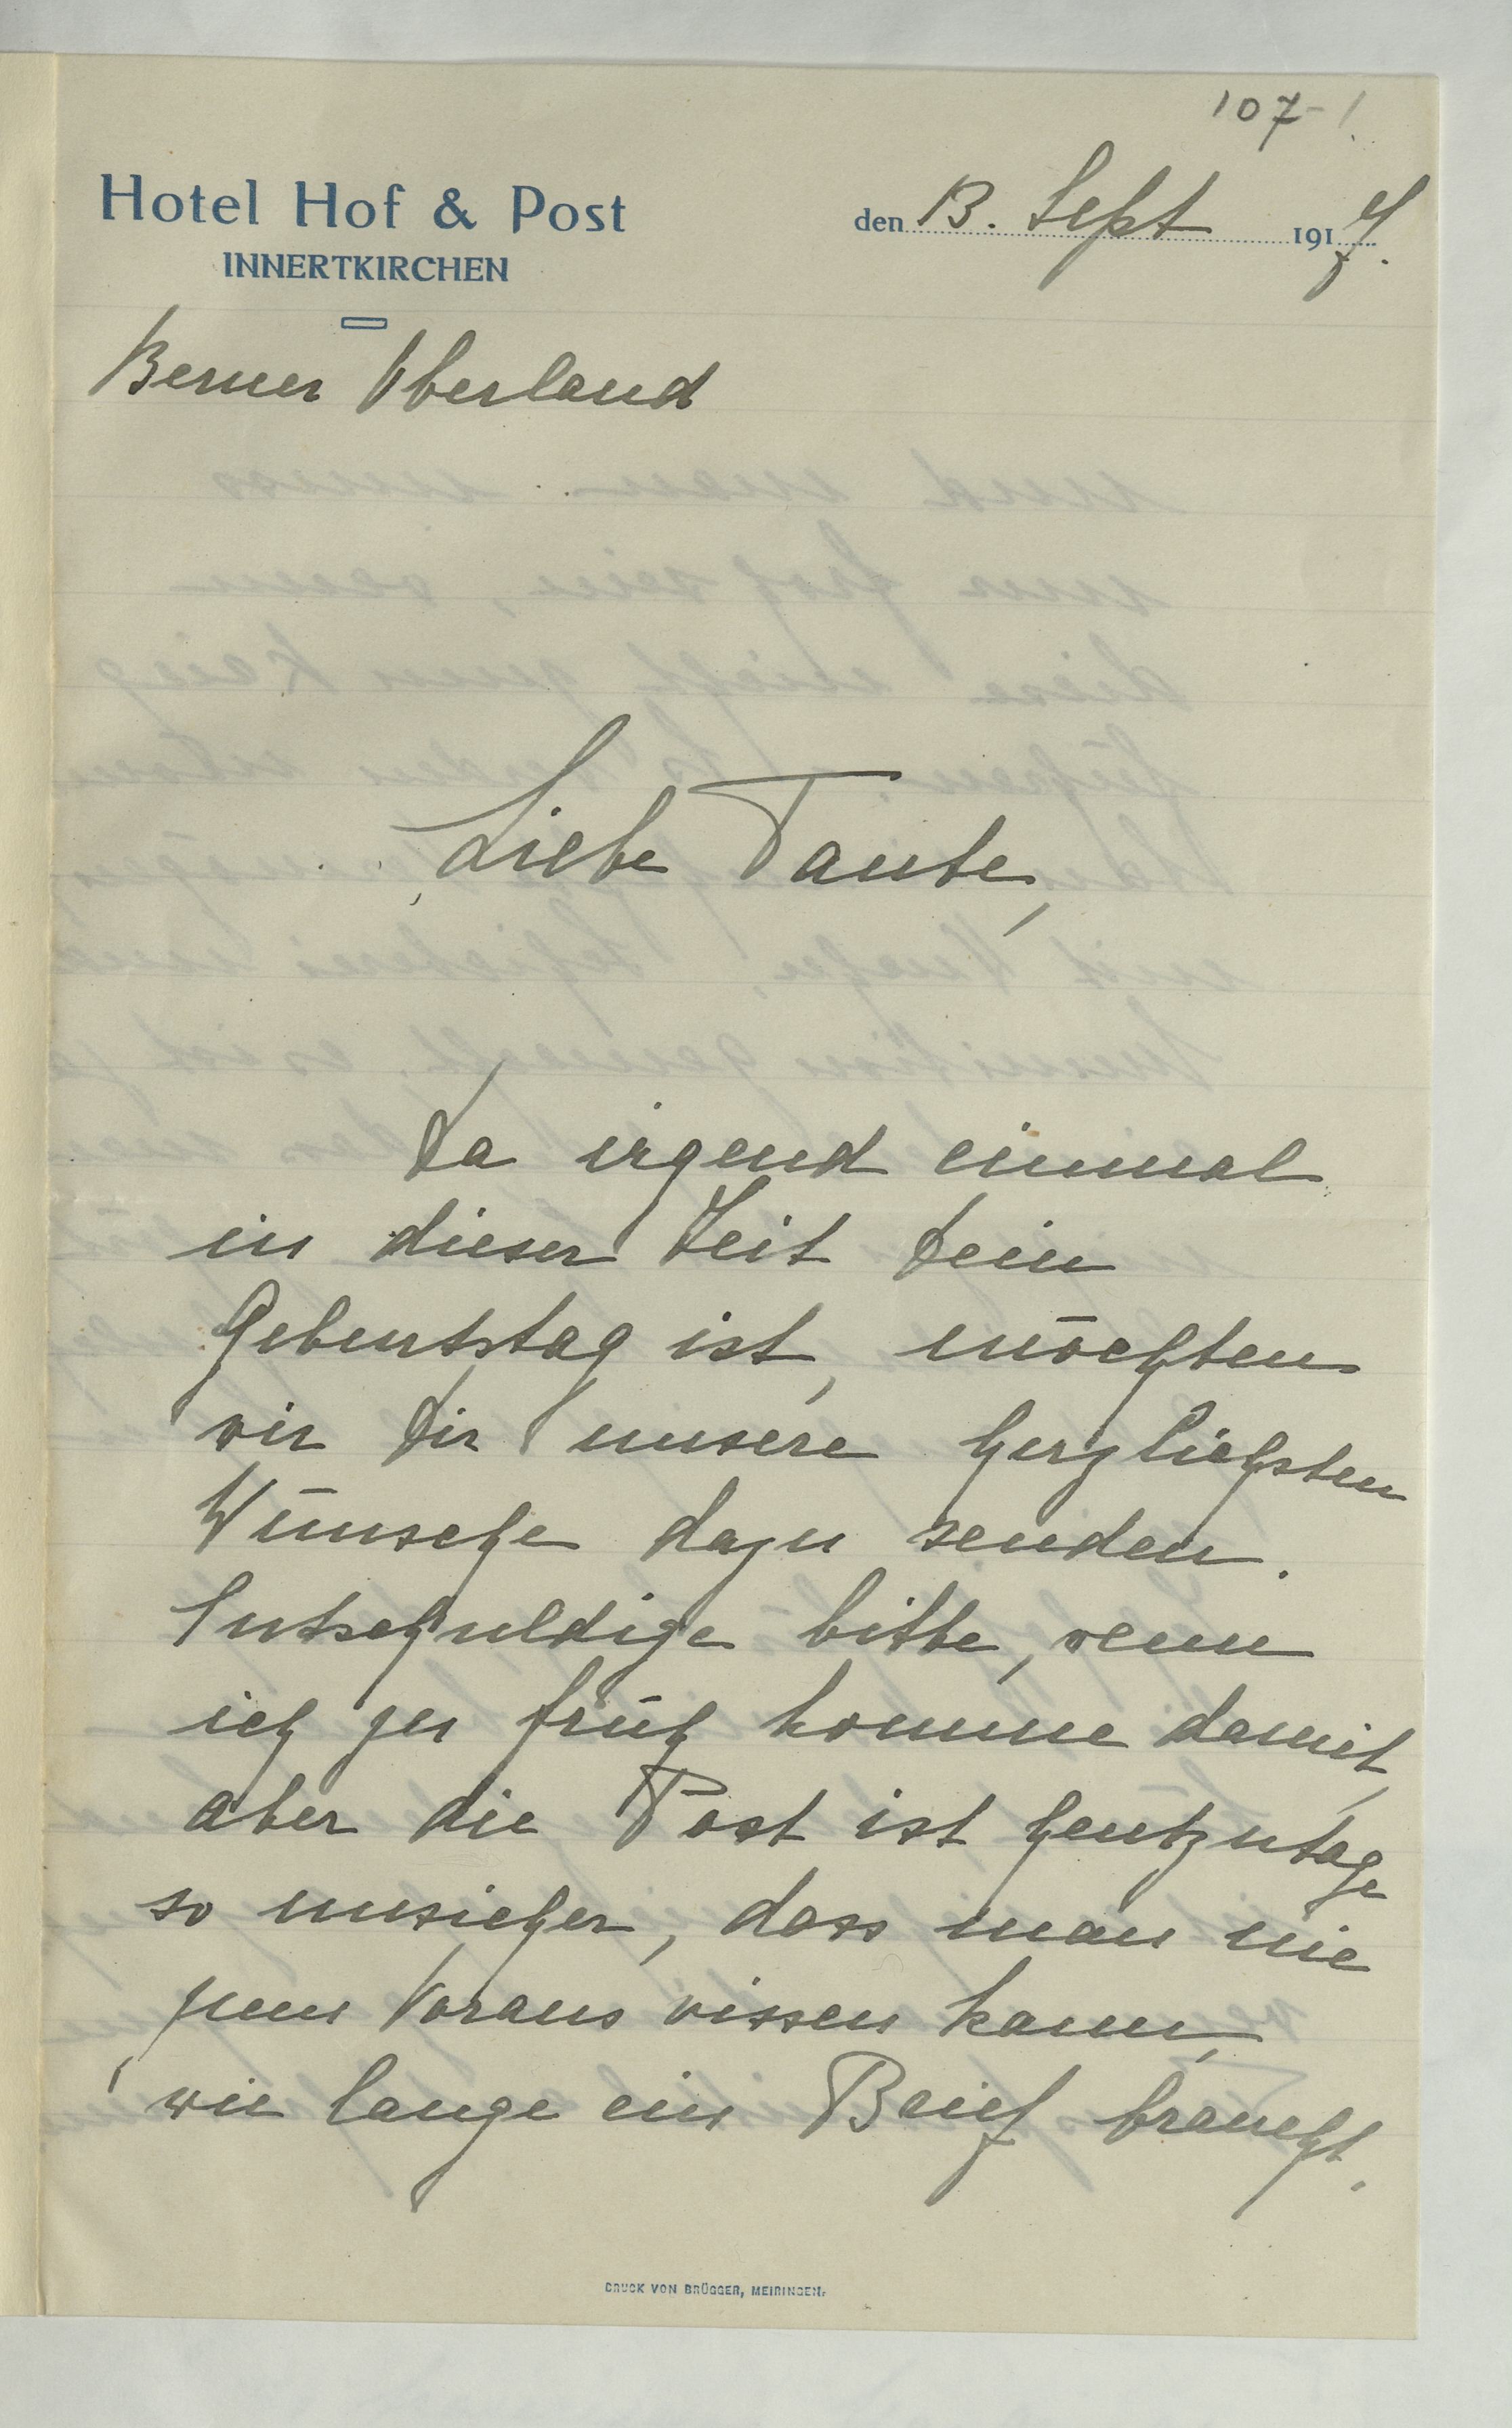 107-1.
Hotel Hof & Post
INNERTKIRCHEN
den 13. Sept 1917.
Berner Oberland
Liebe Tante,
Da irgend einmal
in dieser Zeit Dein
Geburtstag ist, möchten
wir Dir unsere herzlichsten
Wünsche dazu senden.
Entschuldige bitte, wenn
ich zu früh komme damit,
aber die Post ist heutzutage
so unsicher, dass man nie
zum Voraus wissen kann,
wie lange ein Brief braucht.
DRUCK VON BRÜGGER, MEIRINGEN.